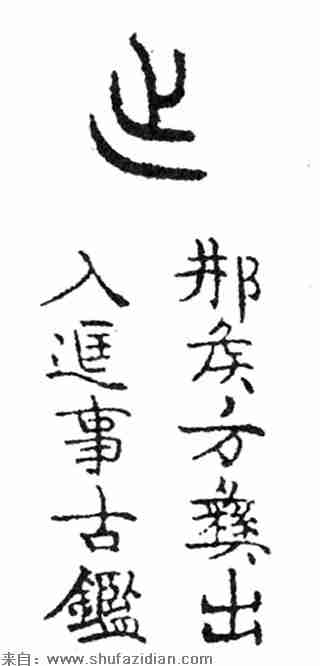 出
邢矦方彝出
入事古鑑
来自：www.shufazidian.com